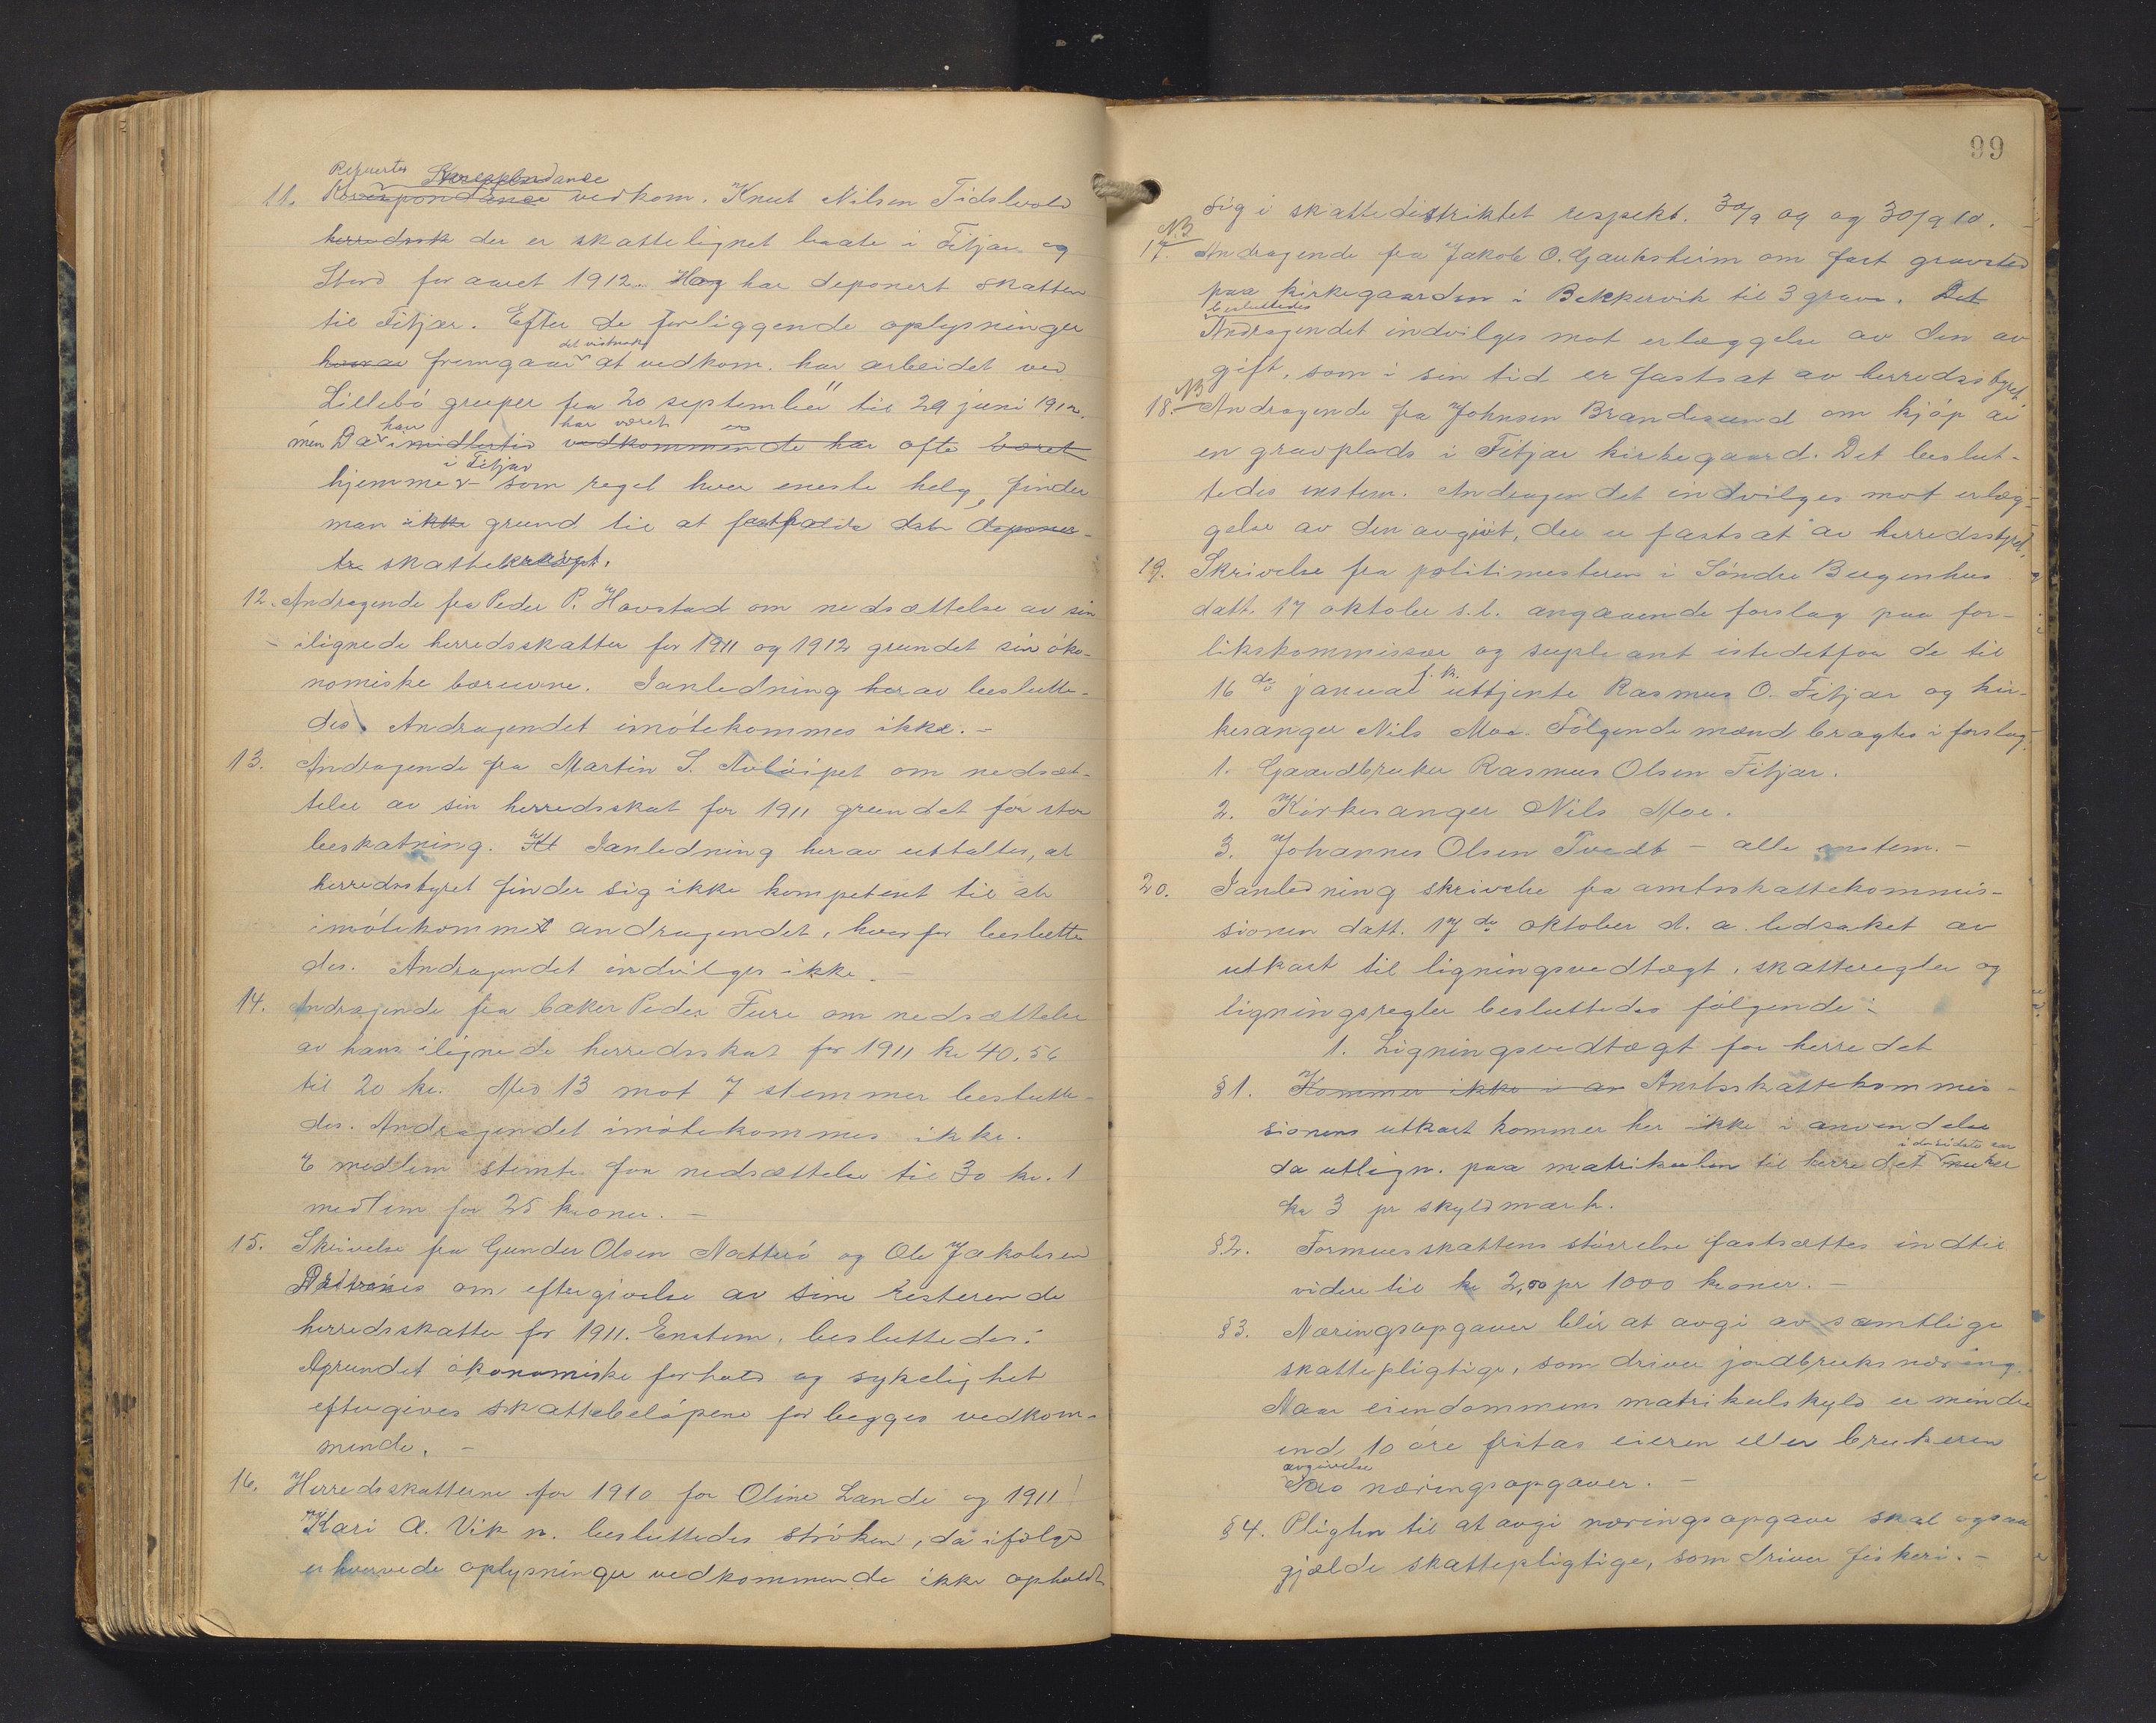 11. Korrespondance vedkom. Knut Nilsen Tidslvold
herredssk der er skattelignet baate i Fitjar og
Stord for aaret 1912. Han har deponert skatten
til Fitjar. Efter de foreliggende oplysninger
fremgaar det at vedkom. har arbeidet ved
Lillebö gruper fra 20 september 11 til 29 juni 1912.
men Da han imidlertid vedkommende har været ofte været
hjemme i Fitjar som regel hver eneste helg, finder
man ikke grund til at fastholde det deponer-
te skattebeløp.
12. Andragende fra Peder P. Havstad om nedsættelse av sin
ilignede herredsskatter for 1911 og 1912 grundet sin öko-
nomiske bæreevne. Ianledning herav beslutte-
des. Andragendet imötekommes ikke. -
13. Andragende fra Martin S. Aulöipet om nedsæt-
telse av sin herredsskat for 1911 grundet for stor
beskatning. Ianledning herav uttaltes, at
herredsstyret finder sig ikke kompetent til at
imötekommet andragendet, hvorfor beslutte
des. Andragendet indvilges ikke. -
14. Andragende fra baker Peder Fure om nedsættelse
av hans ilignede herredsskat for 1911 kr 40.56
til 20 kr. Med 13 mot 7 stemmer beslutte-
des. Andragendet imötekommes ikke.
6 medlem stemte for nedsættelse til 30 kr. 1
medlem for 25 kroner. -
15. Skrivelse fra Gunder Olsen Natterö og Ole Jakobsen
om eftergivelse av sine resterende
herredsskatter for 1911. Enstem. besluttedes:
Agrundet ökonomiske forhold og sykelighet
eftergives skattebelöpene for begges vedkom-
mende. -
16. Herredsskatterne for 1910 for Oline Lande og 1911
Kari A. Vik n. besluttedes ströken, da ifölge
erhvervede oplysninger vedkommende ikke opholdt
99
sig i skattedistriktet respekt. 30/9 09 og 30/9 10.
NB
17. Andragende fra Jakob O. Gauksheim om fast gravsted
paa kirkegaarden i Bekkervik til 3 grave. Det
besluttedes
Andragendet indvilges mot erlæggelse av den av
gift, som i sin tid er fastsat av herredsstyret
NB
18. Andragende fra Johnsen Brandesund om kjöp av
en gravplads i Fitjar kirkegaard. Det beslut-
tedes enstem. Andragendet indvilges mot erlæg-
gelse av den avgivt, der er fastsat av herredsstyret.
19. Skrivelse fra politimesteren i Söndre Bergenhus
datt. 17 oktober s.l. angaaende forslag paa for-
likskommissær og supleant istedetfor de til
16 de januar f. k. uttjente Rasmus O. Fitjar og kir-
kesanger Nils Moe. Fölgende mænd bragtes i forslag
1. Gaardbruker Rasmus Olsen Fitjar.
2. Kirkesanger Nils Moe.
3. Johannes Olsen Tvedt - alle enstem. -
20. Ianledning skrivelse fra amtsskattekommis-
sionen datt. 17 de oktober d. a. ledsaket av
utkast til ligningsvedtægt, skatteregler og
ligningsregler besluttedes fölgende:
1. Ligningsvedtægt for herredet
§ 1. Kommer ikke i an Amtsskattekommis-
sionens utkast kommer her ikke i anvendelse
da utlign. paa matrikulen til herredet
kr 3 pr skyldmark.
§ 2. Formuesskattens störrelse fastsættes indtil
videre til kr 2,00 pr 1000 kroner. -
§ 3. Næringsopgaver blir at avgi av samtlige
skattepligtige, som driver jordbruksnæring.
Naar eiendommens matrikulskyld er mindre
end 10 öre fritas eieren eller brukeren
avgivelse
næringsopgaver. -
§ 4. Pligten til at avgi næringsopgave skal ogsaa
gjælde skattepligtige, som driver fiskeri. -